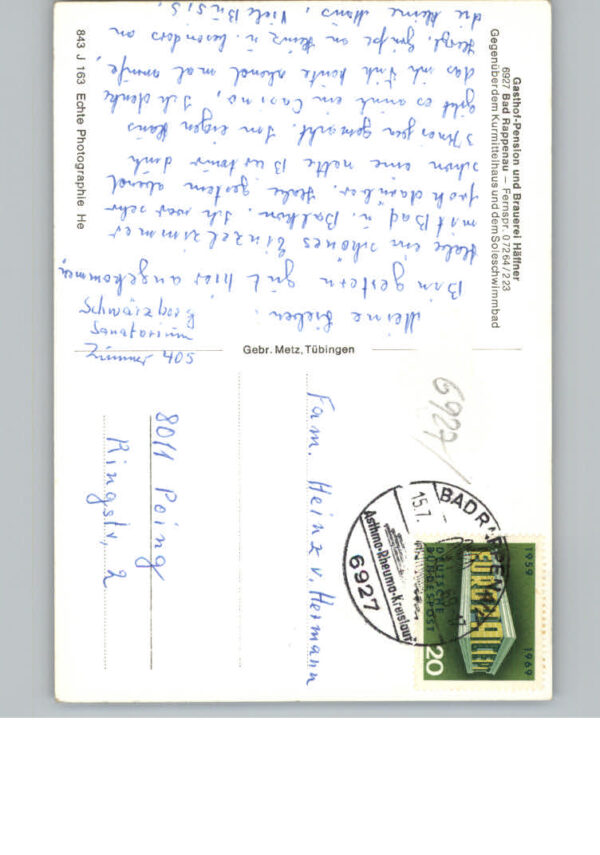 Gasthof-Pension und Brauerei Häffner
6927 Bad Rappenau – Fernspr. 07264/223
Gegenüber dem Kurmittelhaus und dem Soleschwimmbad
Zimmer 504
Sanatorium
Meine Lieben!
Bin gestern gut hier angekommen,
Habe ein schönes Einzelzimmer
mit Bad u. Balkon. Ich war sehr
froh darüber. Habe gestern abend
schon eine nette
3 gemacht. Im eigen Haus
gibt es auch ein Casino, Ich denke
das ich Euch heute abend mal anrufe,
Herzl. Grüße an Heinz u. besonders an
die kleine Maus, Viele Bussis,
843 J 163 Echte Photographie He
Gebr. Metz, Tübingen
6927
Fam. Heinz v. Hermann
8011 Poing
Ringstr. 2
BAD RAPPENAU
15.7.
Asthma-Rheuma-Kreislauf
6927
1959
1969
EUROPA
CEPT
DEUTSCHE
BUNDESPOST
20